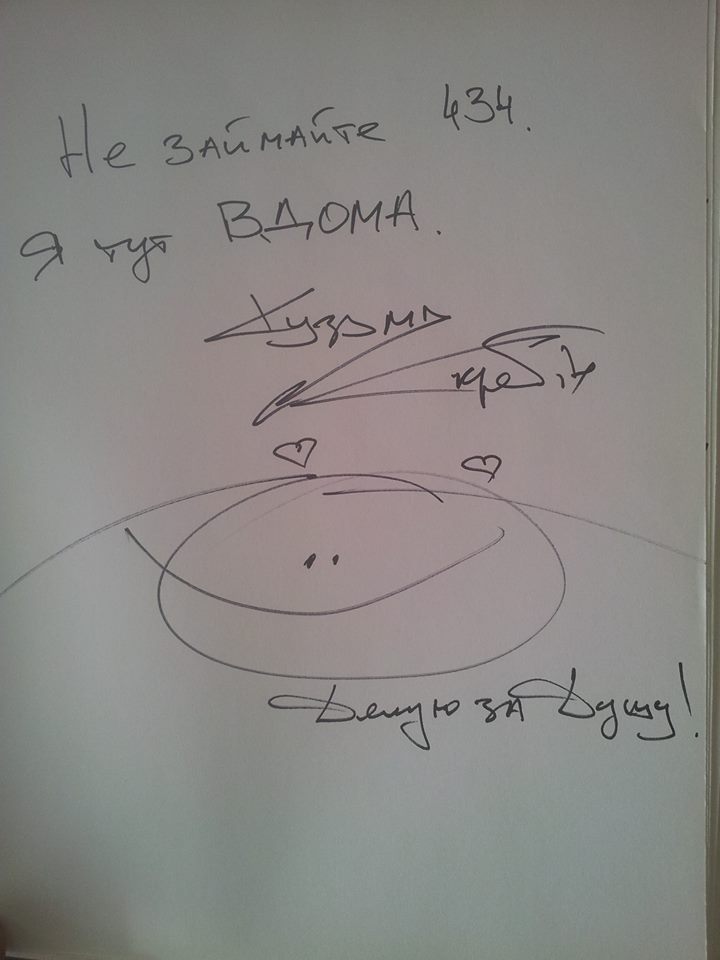 Не займайте 434.
Я тут ВДОМА.
Кузьма
Скрябін
Дякую за Душу!